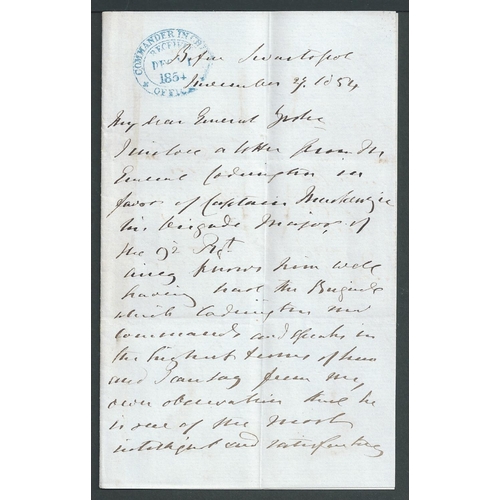 COMMANDER IN CHIEF'S
RECEIVED
DEC
1854
OFFICE
Before Sevastopol
November 27. 1854
My dear General Yorke
I inclose a letter from M.
General Codrington in
favor of Captain Mackenzie
his Brigade Major, of
the 92 Regt
Airey knows him well
having had the Brigade
which Codrington now
commands and speaks in
the highest terms of him
and I can say from my
own observation that he
is one of the most
intelligent and satisfactory